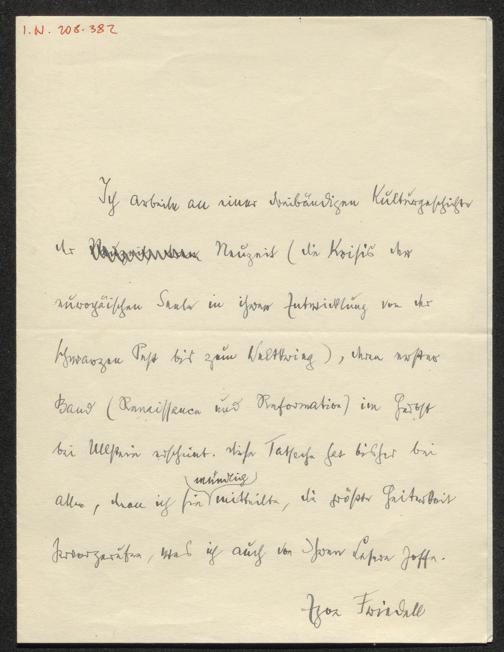 I.N. 208.382
Ich arbeite an einer dreibändigen Kulturgeschichte
der Neuzeit (die Krisis der
europäischen Seele in ihrer Entwicklung von der
schwarzen Pest bis zum Weltkrieg), deren erster
Band (Renaissance und Reformation) im Herbst
bei Ullstein erscheint. Diese Tatsache hat bisher bei
allen, denen ich sie (mündlich) mitteilte, die größte Heiterkeit
hervorgerufen, was ich auch von Ihren Lesern hoffe.
Egon Friedell